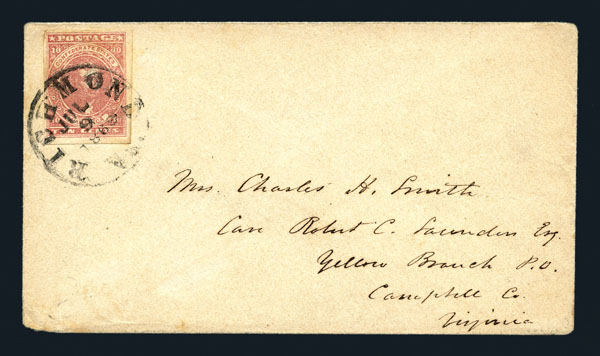 POSTAGE
10 10
CONFEDERATE STATES
TEN CENTS
RICHMOND VA
JUL
9
Mrs. Charles H. Smith
Care Robert C. Saunders Esq.
Yellow Branch P.O.
Campbell Co.
Virginia